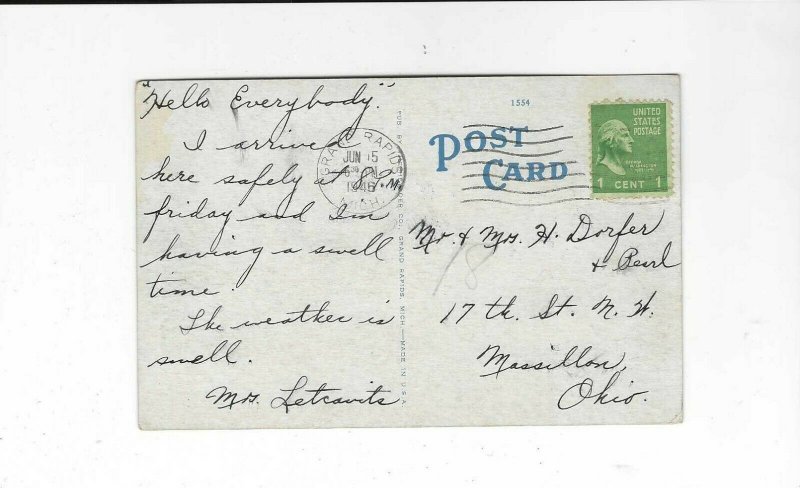 "Hello Everybody."
I arrived
here safely at 8 P.M.
friday and I'm
having a swell
time.
The weather is
swell.
Mrs. Letcavits
PUB. BY PAPER CO., GRAND RAPIDS, MICH.—MADE IN U.S.A.
1554
POST
CARD
GRAND RAPIDS
JUN 15
1946
MICH.
UNITED
STATES
POSTAGE
1 CENT 1
Mr. & Mrs. H. Dorfer
& Pearl
18
17 th. St. N. W.
Massillon,
Ohio.